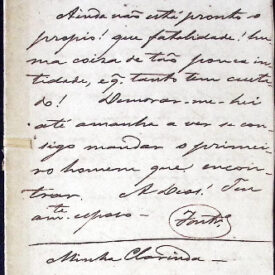 Ainda não está prompto o
proprio! que fatalidade! hu
ma coiza de tão pouca in
tidade, e q. tanto tem custa
do! Demorar-me-hei
até amanhã a ver se con
sigo mandar o primei
ro homem que encon
trar. A Deos! Teu
am.te esposo —
Minha Clorinda —